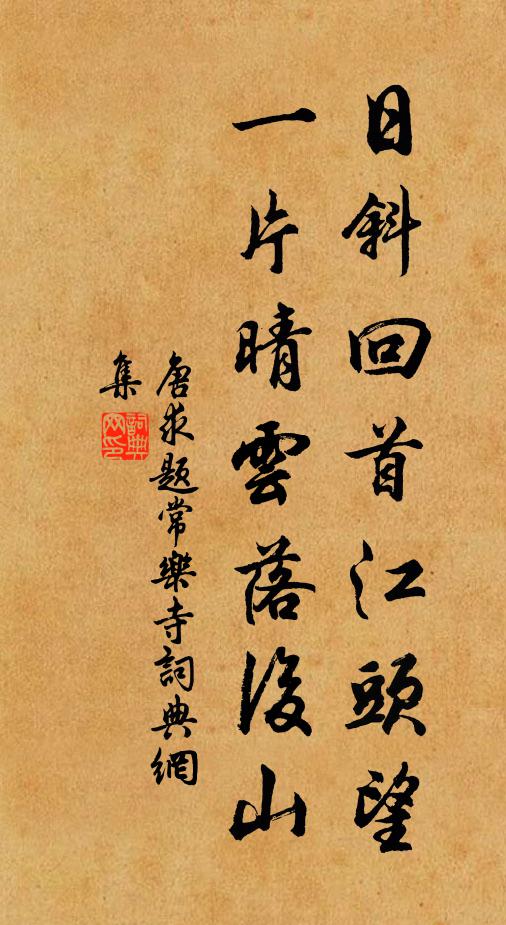 日斜回首江頭望
一片晴雲落後山
唐求題常樂寺詞典網
集
詞典网印